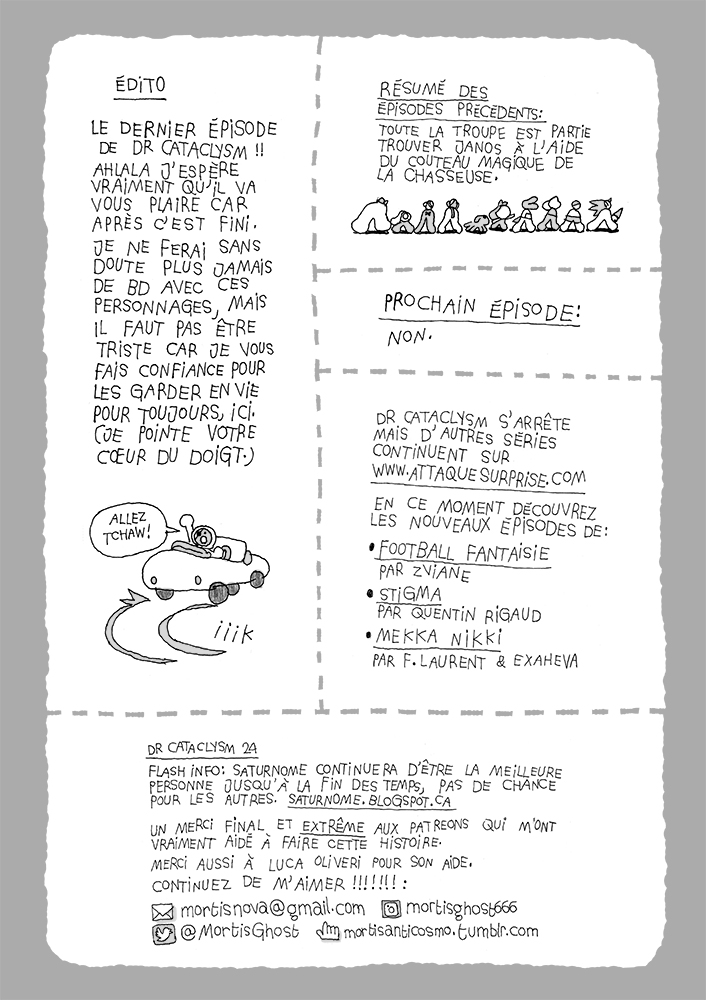 ÉDITO
LE DERNIER ÉPISODE
DE DR CATACLYSM !!
AHLALA J'ESPÈRE
VRAIMENT QU'IL VA
VOUS PLAIRE CAR
APRÈS C'EST FINI.
JE NE FERAI SANS
DOUTE PLUS JAMAIS
DE BD AVEC CES
PERSONNAGES, MAIS
IL FAUT PAS ÊTRE
TRISTE CAR JE VOUS
FAIS CONFIANCE POUR
LES GARDER EN VIE
POUR TOUJOURS, ICI.
(JE POINTE VOTRE
CŒUR DU DOIGT.)
ALLEZ
TCHAW!
iiik
RÉSUMÉ DES
ÉPISODES PRÉCÉDENTS:
TOUTE LA TROUPE EST PARTIE
TROUVER JANOS À L'AIDE
DU COUTEAU MAGIQUE DE
LA CHASSEUSE.
PROCHAIN ÉPISODE:
NON.
DR CATACLYSM S'ARRÊTE
MAIS D'AUTRES SÉRIES
CONTINUENT SUR
WWW.ATTAQUESURPRISE.COM
EN CE MOMENT DÉCOUVREZ
LES NOUVEAUX ÉPISODES DE:
• FOOTBALL FANTAISIE
PAR ZVIANE
• STIGMA
PAR QUENTIN RIGAUD
• MEKKA NIKKI
PAR F. LAURENT & EXAHEVA
DR CATACLYSM 24
FLASH INFO: SATURNOME CONTINUERA D'ÊTRE LA MEILLEURE
PERSONNE JUSQU'À LA FIN DES TEMPS, PAS DE CHANCE
POUR LES AUTRES. SATURNOME.BLOGSPOT.CA
UN MERCI FINAL ET EXTRÊME AUX PATREONS QUI M'ONT
VRAIMENT AIDÉ À FAIRE CETTE HISTOIRE.
MERCI AUSSI À LUCA OLIVERI POUR SON AIDE.
CONTINUEZ DE M'AIMER !!!!!!! :
mortisnova@gmail.com mortisghost666
@MortisGhost mortisanticosmo.tumblr.com